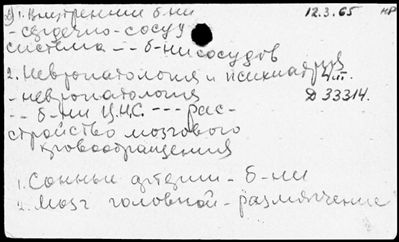 1. Внутренние б-ни 12.3.65 нр
- сердечно-сосуд
система -- б-ни сосудов
2. Невропатология и психиатрия
- невропатология
-- б-ни Ц.Н.С. --- рас- Д 33314.
стройство мозгового
кровообращения
1. Сонные артерии - б-ни
2. Мозг головной - размягчение